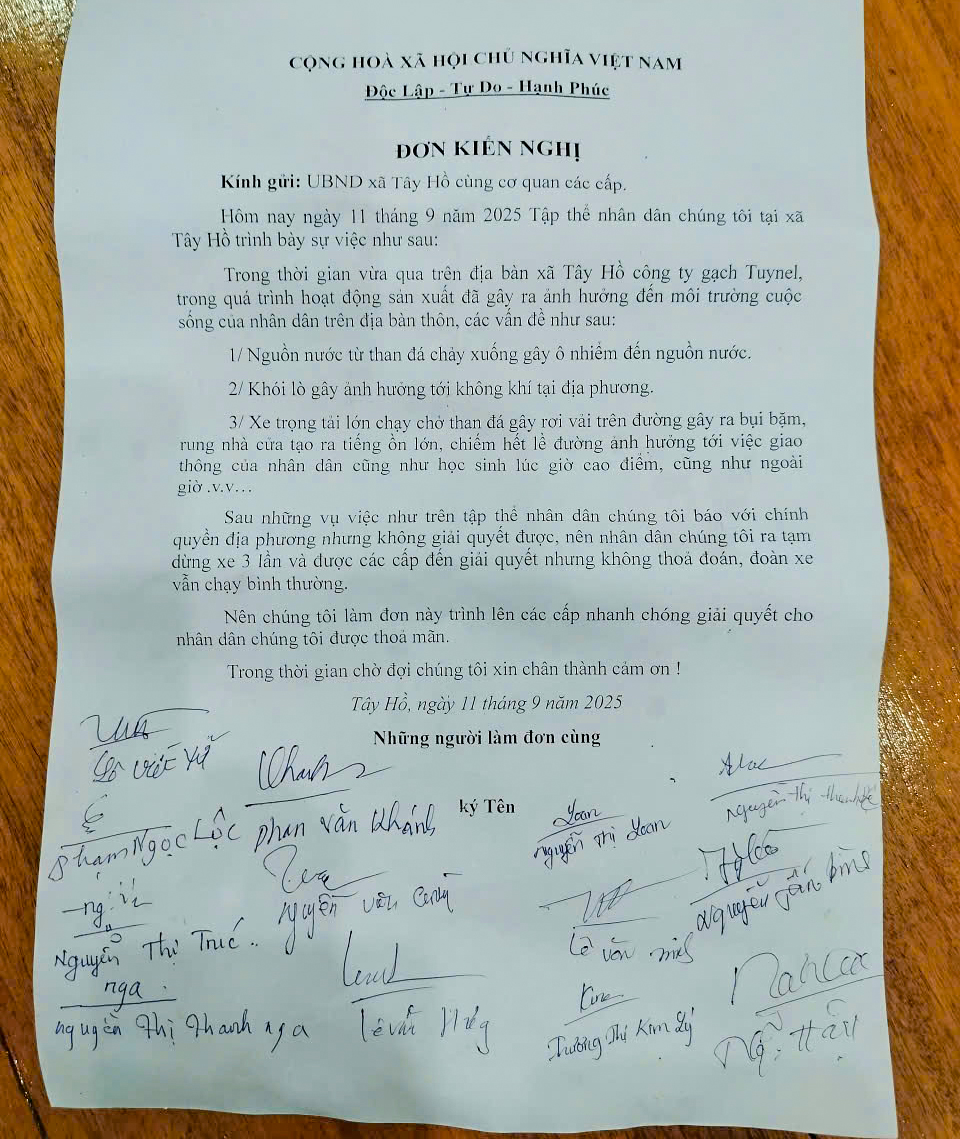 CỘNG HOÀ XÃ HỘI CHỦ NGHĨA VIỆT NAM
Độc Lập - Tự Do - Hạnh Phúc
ĐƠN KIẾN NGHỊ
Kính gửi: UBND xã Tây Hồ cùng cơ quan các cấp.
Hôm nay ngày 11 tháng 9 năm 2025 Tập thể nhân dân chúng tôi tại xã
Tây Hồ trình bày sự việc như sau:
Trong thời gian vừa qua trên địa bàn xã Tây Hồ công ty gạch Tuynel,
trong quá trình hoạt động sản xuất đã gây ra ảnh hưởng đến môi trường cuộc
sống của nhân dân trên địa bàn thôn, các vấn đề như sau:
1/ Nguồn nước từ than đá chảy xuống gây ô nhiễm đến nguồn nước.
2/ Khói lò gây ảnh hưởng tới không khí tại địa phương.
3/ Xe trọng tải lớn chạy chở than đá gây rơi vãi trên đường gây ra bụi bặm,
rung nhà cửa tạo ra tiếng ồn lớn, chiếm hết lề đường ảnh hưởng tới việc giao
thông của nhân dân cũng như học sinh lúc giờ cao điểm, cũng như ngoài
giờ .v.v…
Sau những vụ việc như trên tập thể nhân dân chúng tôi báo với chính
quyền địa phương nhưng không giải quyết được, nên nhân dân chúng tôi ra tạm
dừng xe 3 lần và được các cấp đến giải quyết nhưng không thoả đoán, đoàn xe
vẫn chạy bình thường.
Nên chúng tôi làm đơn này trình lên các cấp nhanh chóng giải quyết cho
nhân dân chúng tôi được thoả mãn.
Trong thời gian chờ đợi chúng tôi xin chân thành cảm ơn !
Tây Hồ, ngày 11 tháng 9 năm 2025
Những người làm đơn cùng
ký Tên
Khanh
Phạm Ngọc Lộc
phan văn Khánh
Loan
Nguyễn Thị Loan
Nguyễn Thị
Nguyễn văn
Lê văn
Nguyễn
Nguyễn Thị Trúc
nga
nguyễn Thị Thanh nga
Lê văn
Trương Thị Kim Lý